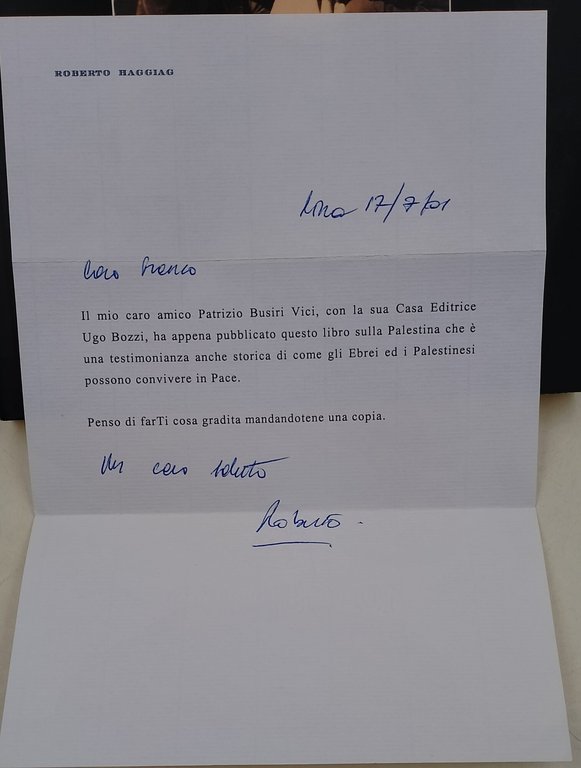 ROBERTO HAGGIAG
Roma 17/7/01
Caro Franco
Il mio caro amico Patrizio Busiri Vici, con la sua Casa Editrice
Ugo Bozzi, ha appena pubblicato questo libro sulla Palestina che è
una testimonianza anche storica di come gli Ebrei ed i Palestinesi
possono convivere in Pace.
Penso di farTi cosa gradita mandandotene una copia.
Un caro saluto
Roberto.